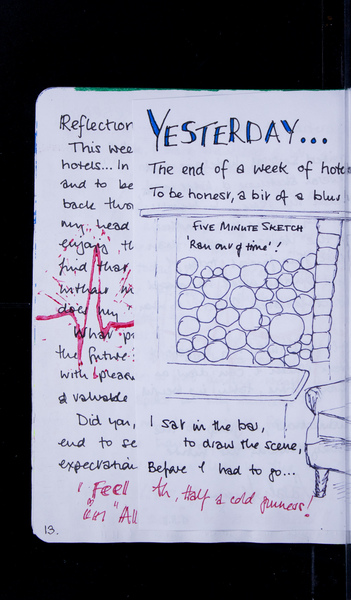 YESTERDAY...
The end of a week of hote
To be honest, a bit of a blur
FIVE MINUTE SKETCH
'Ran out of time'!
I sat in the bar,
to draw the scene,
Before I had to go...
Ah, Half a cold guiness!
Reflection
This wee
hotels... In
and to be
back thro
my head
enjoy th
find that
without m
does my
What pr
the future
with pleas
a valuable
Did you,
end to se
expectation
I Feel
"Im" "All
13.